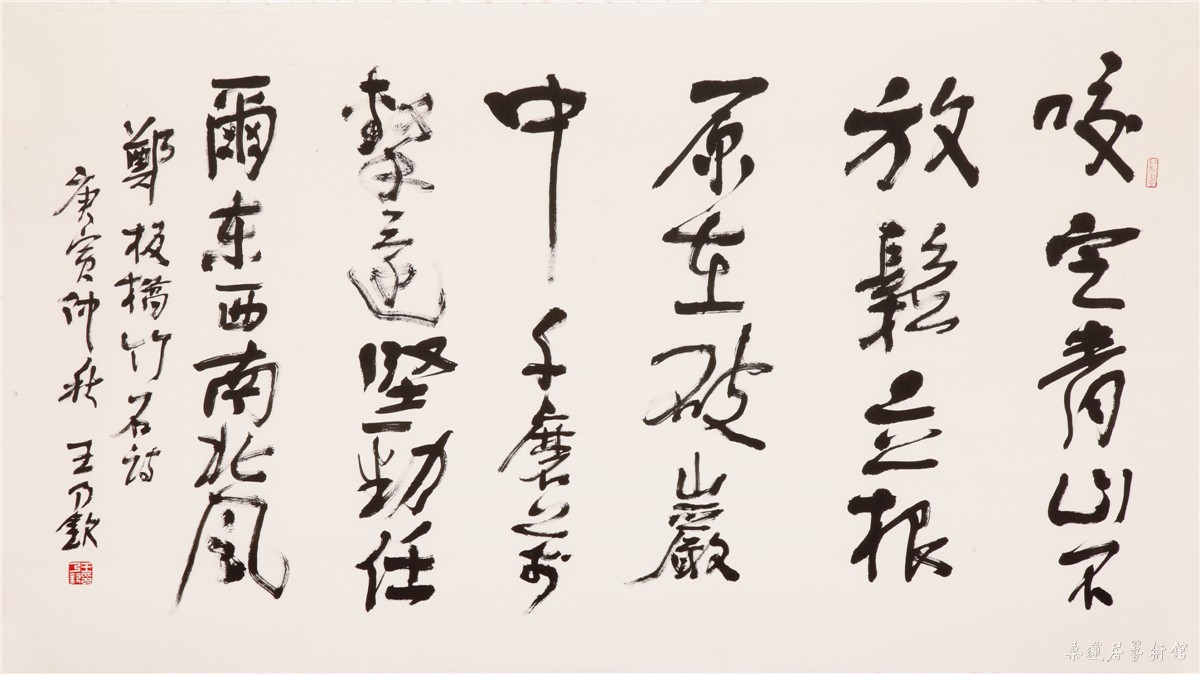 咬定青山不
放鬆立根
原在破巖
中千磨萬
擊還堅勁任
爾東西南北風
鄭板橋竹石詩
庚寅仲秋 王乃欽
桑蓮居藝術館